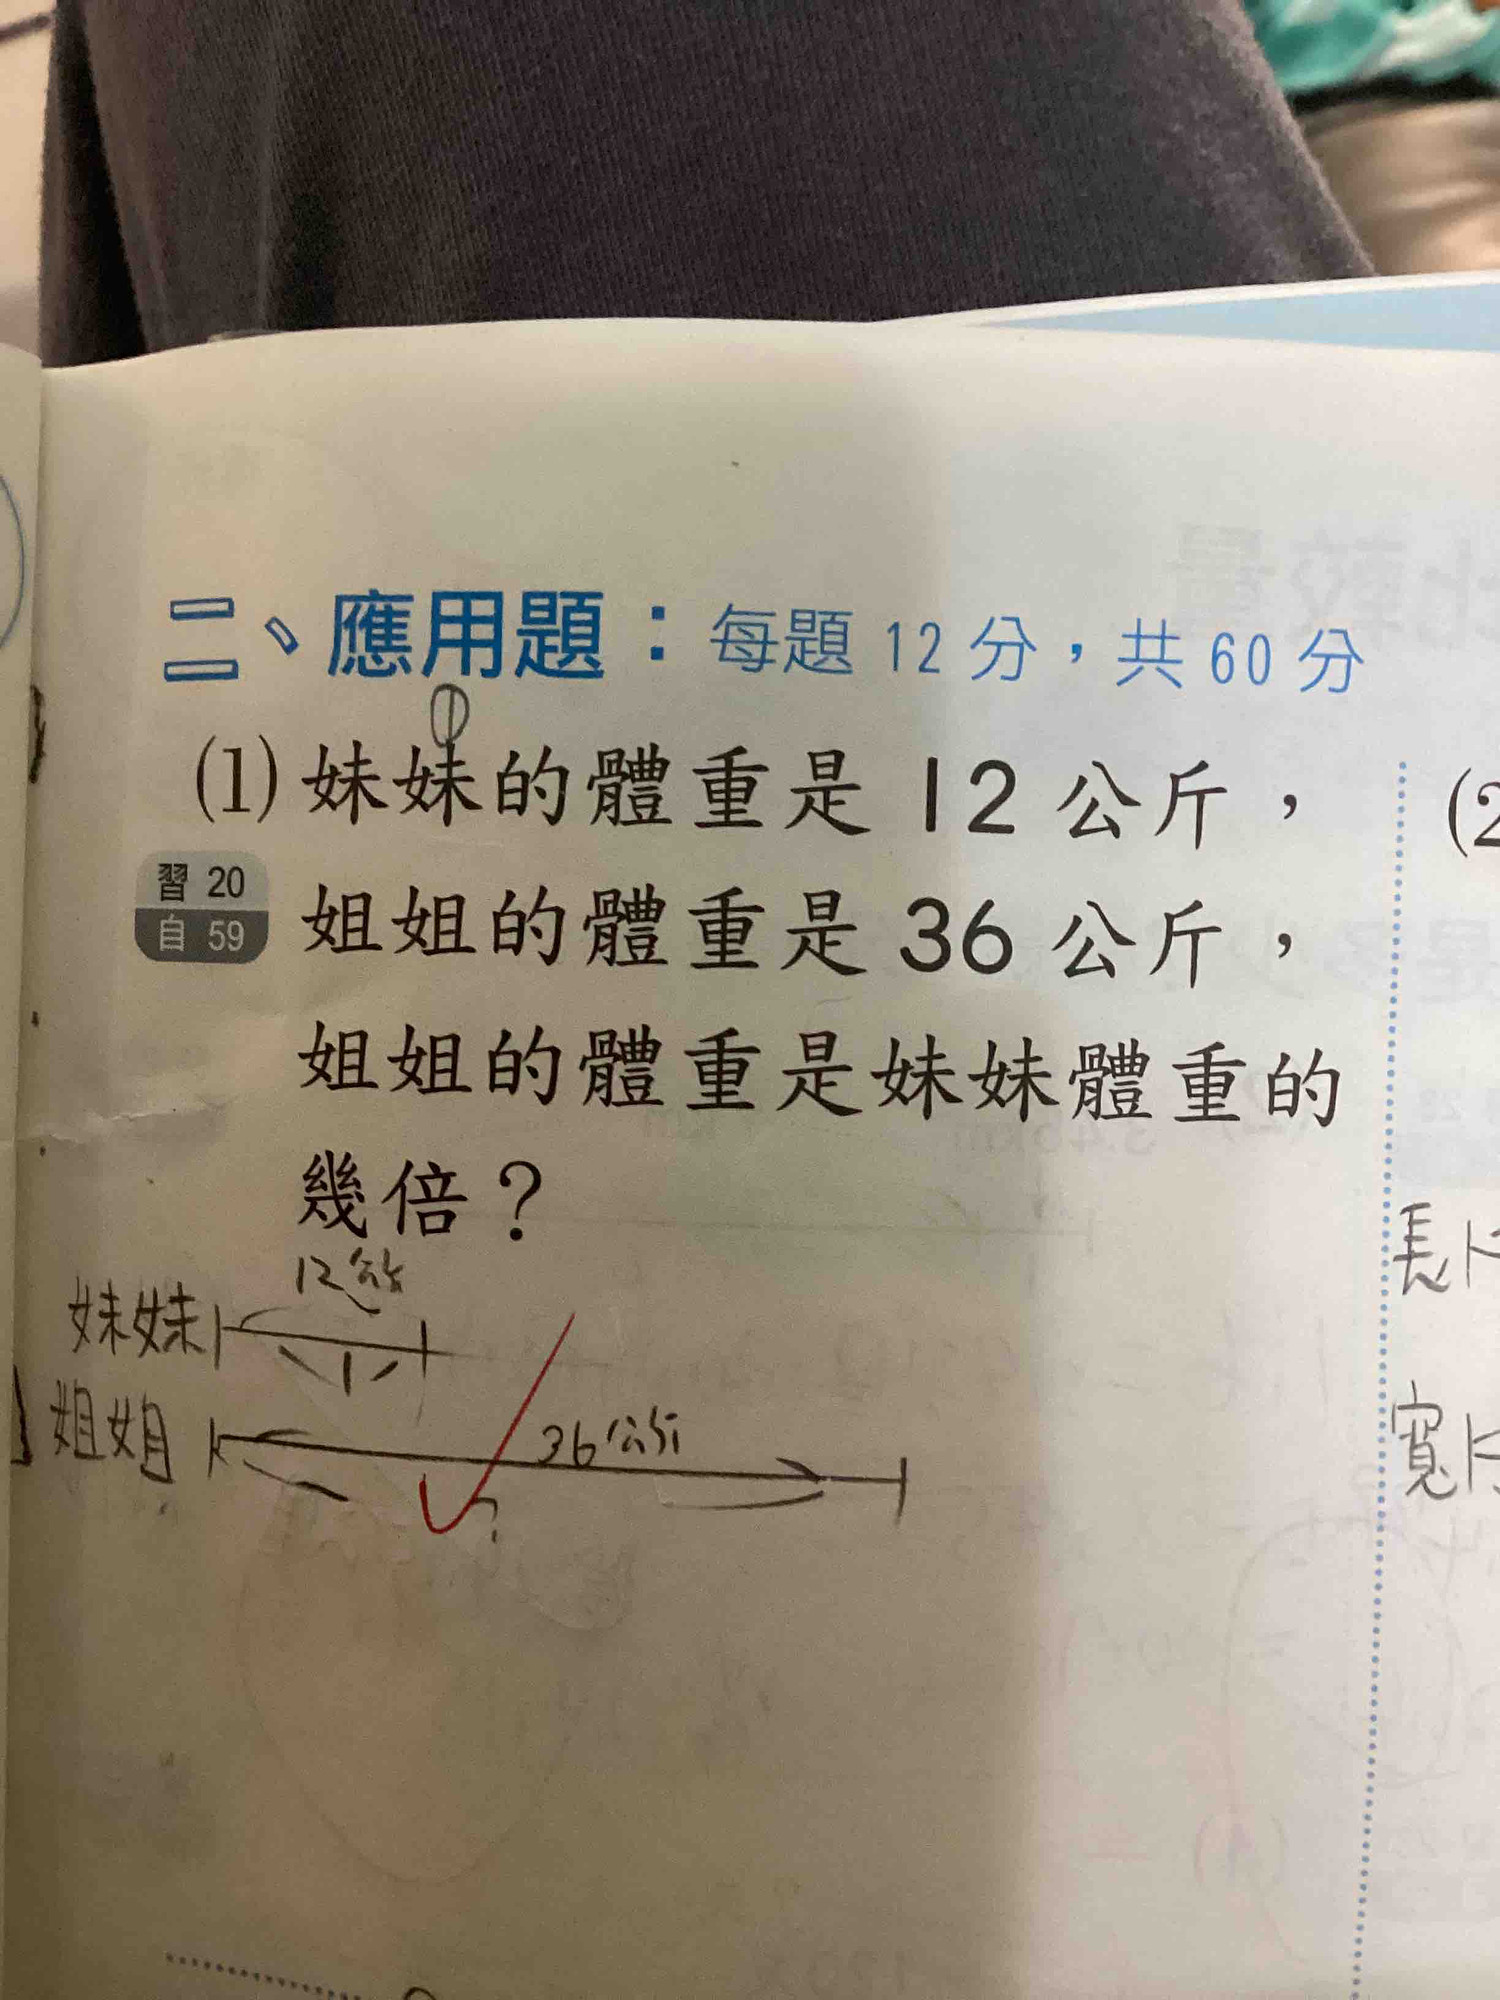 二、應用題：每題 12 分，共 60 分
①
(1) 妹妹的體重是 12 公斤，
習 20
自 59
姐姐的體重是 36 公斤，
姐姐的體重是妹妹體重的
幾倍？
12公斤
妹妹
1
姐姐
36公斤
?
(2
長
寬